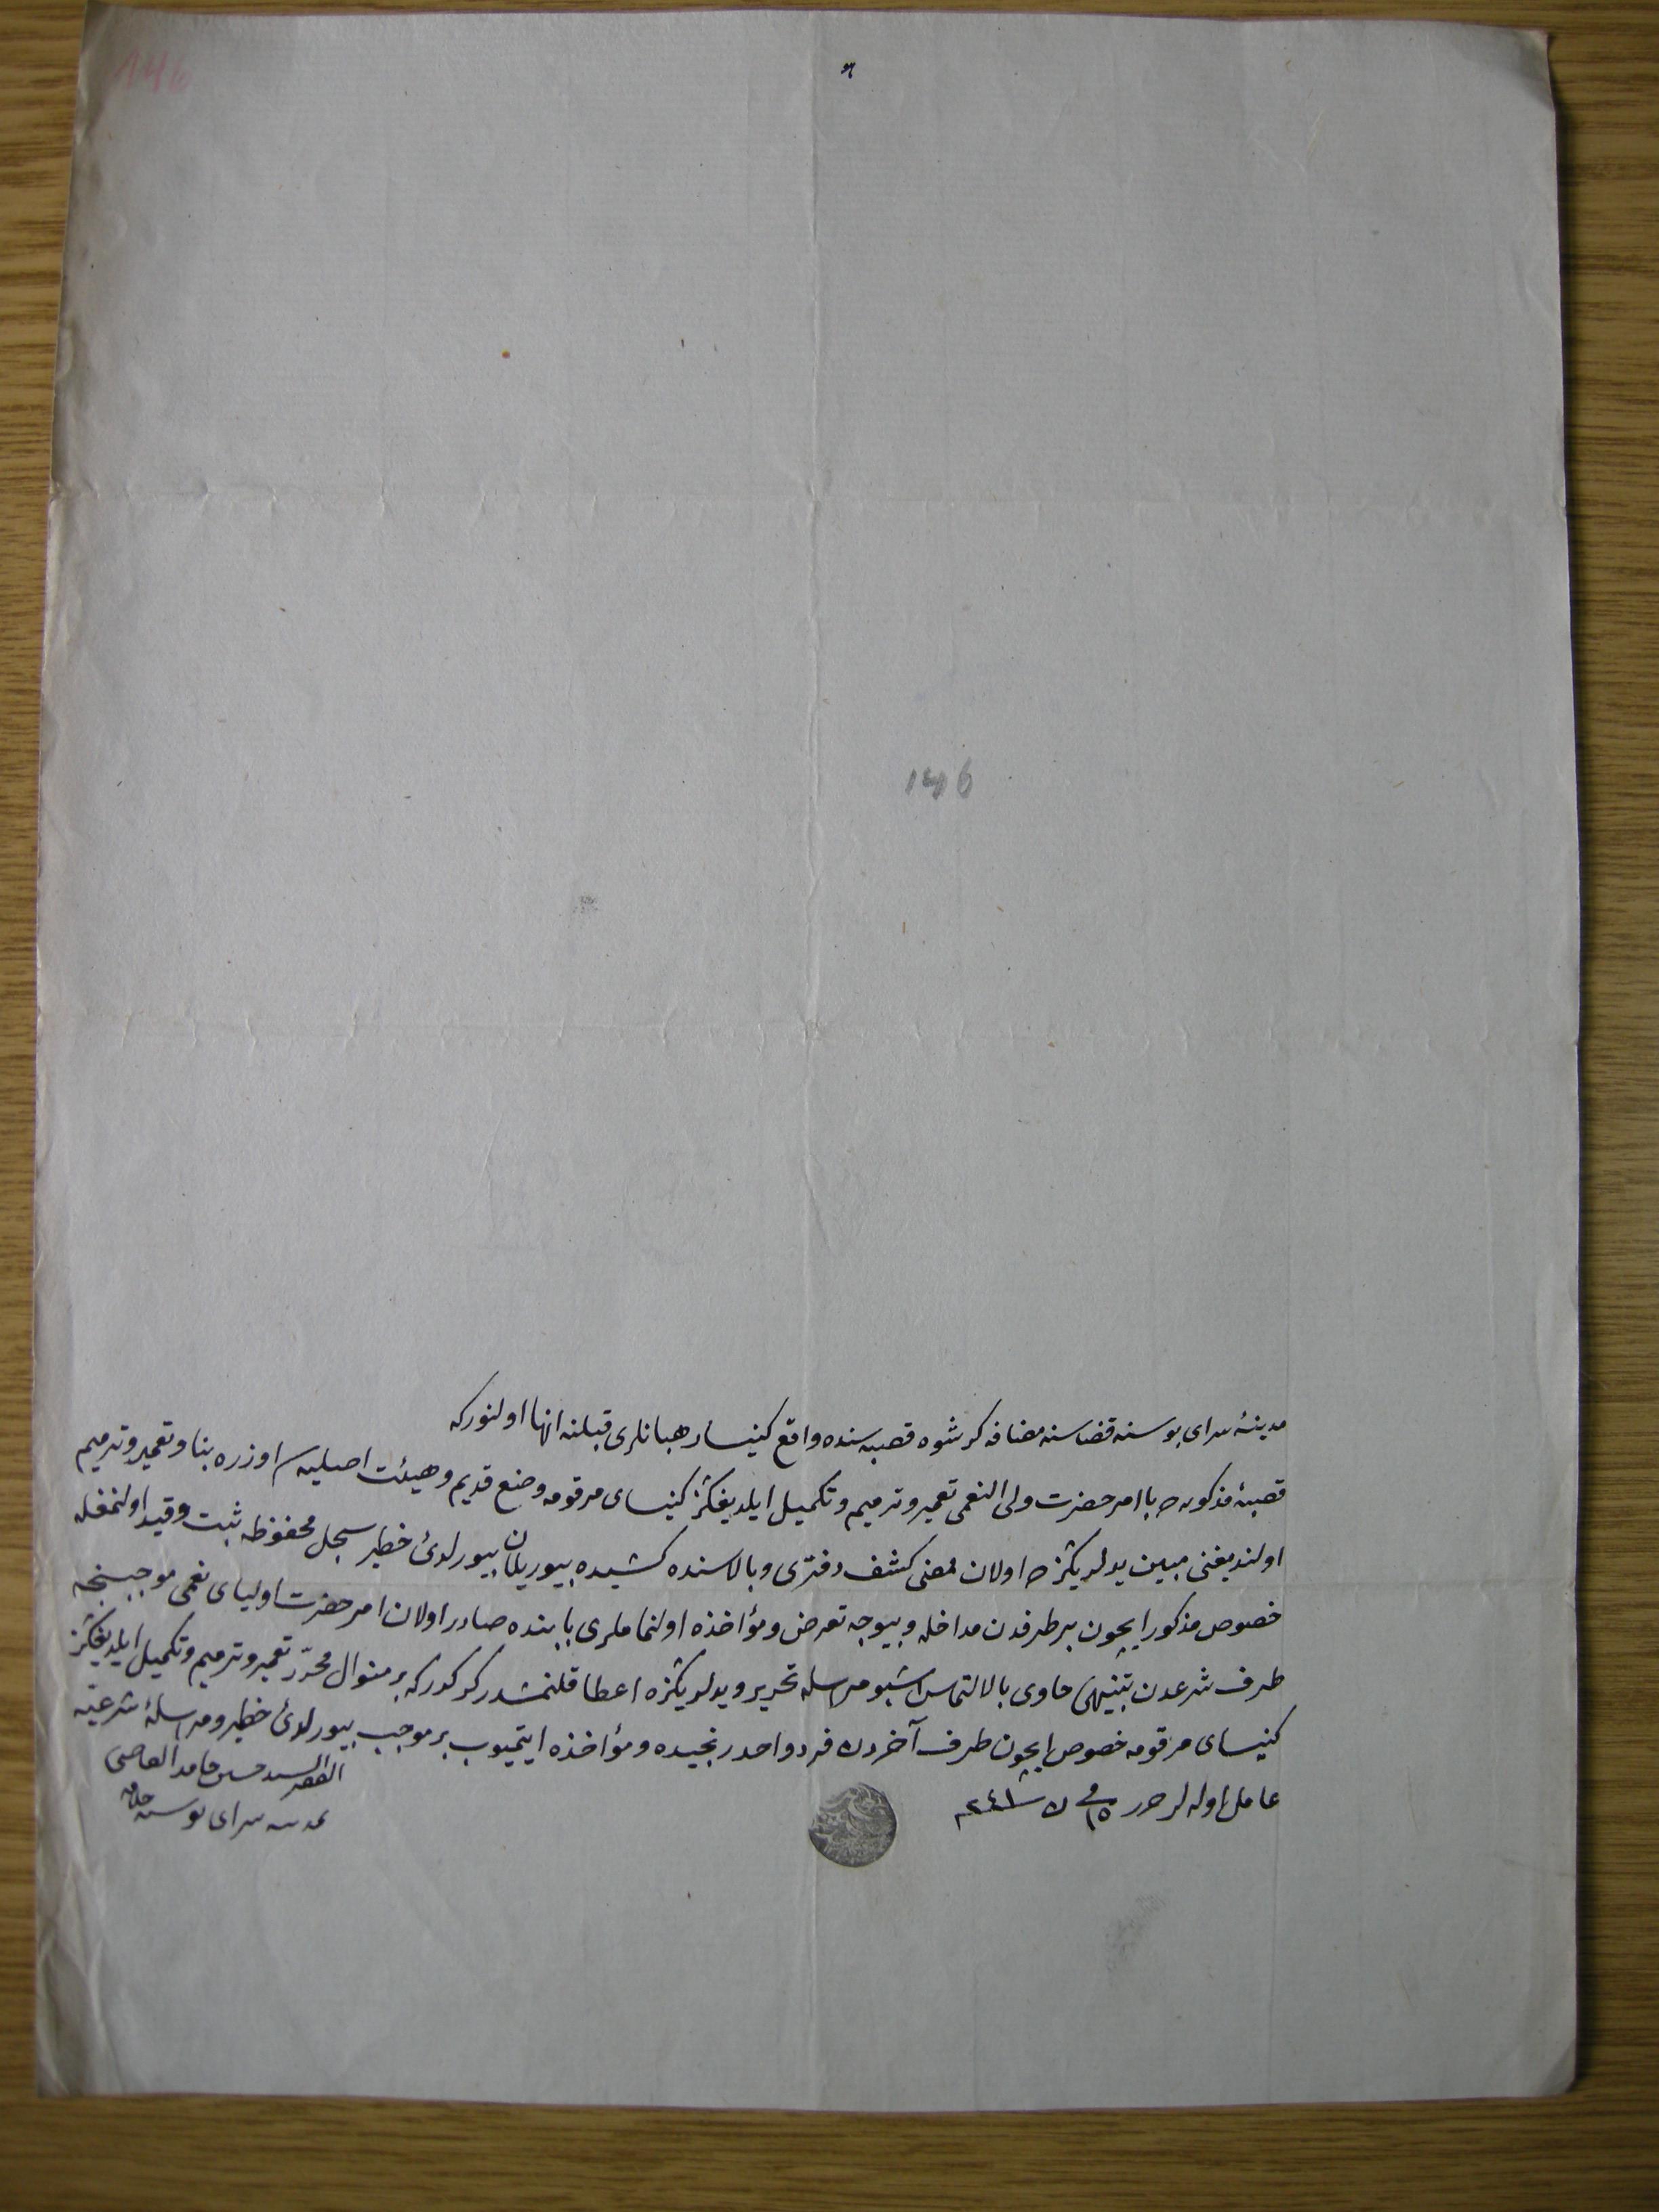 146
146
مدینهٔ سرای بوسنه قضاسنه مضافه کرشوه قصبه سنده واقع کنیسا رهبانلری قبلنه انها اولنورکه
قصبهٔ مذکوره ده با امر حضرت ولی النعمی تعمیر و ترمیم و تکمیل ایلدیفکز کنیسای مرقومه وضع قدیم و هیئت اصلیه سی اوزره بنا و تعمیر و ترمیم
اولندیغنی مبین یدلریکزده اولان ممضی کشف دفتری و بالاسنده کشیده بیوریلان بیورلدئ خطیر سجل محفوظه ثبت و قید اولنمغله
خصوص مذکور ایچون بر طرفدن مداخله و بیوجه تعرض و مؤاخذه اولنماملری بابنده صادر اولان امر حضرت اولیای نعمی موجبنجه
طرف شرعدن تنبیهی حاوی بالالتماس اشبو مراسله تحریر و یدلریکزه اعطا قلنمشدر کرکدرکه بر منوال محرر تعمیر و ترمیم و تکمیل ایلدیفکز
کنیسای مرقومه خصوصی ایچون طرف آخردن فرد واحد رنجیده و مؤاخذه ایتمیوب بر موجب بیورلدئ خطیر و مراسلهٔ شرعیه
عامل اوله لر حرر فی ١٥ ن سنه ٢٤١
الفقیر السید حسین حامد القاضی
بمدینه سرای بوسنه